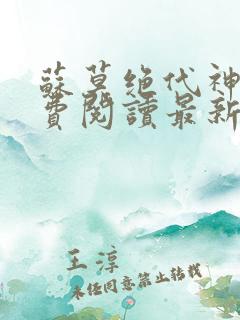 蘇莫绝代神
费閱讀最新
王淳
未经同意禁止转载